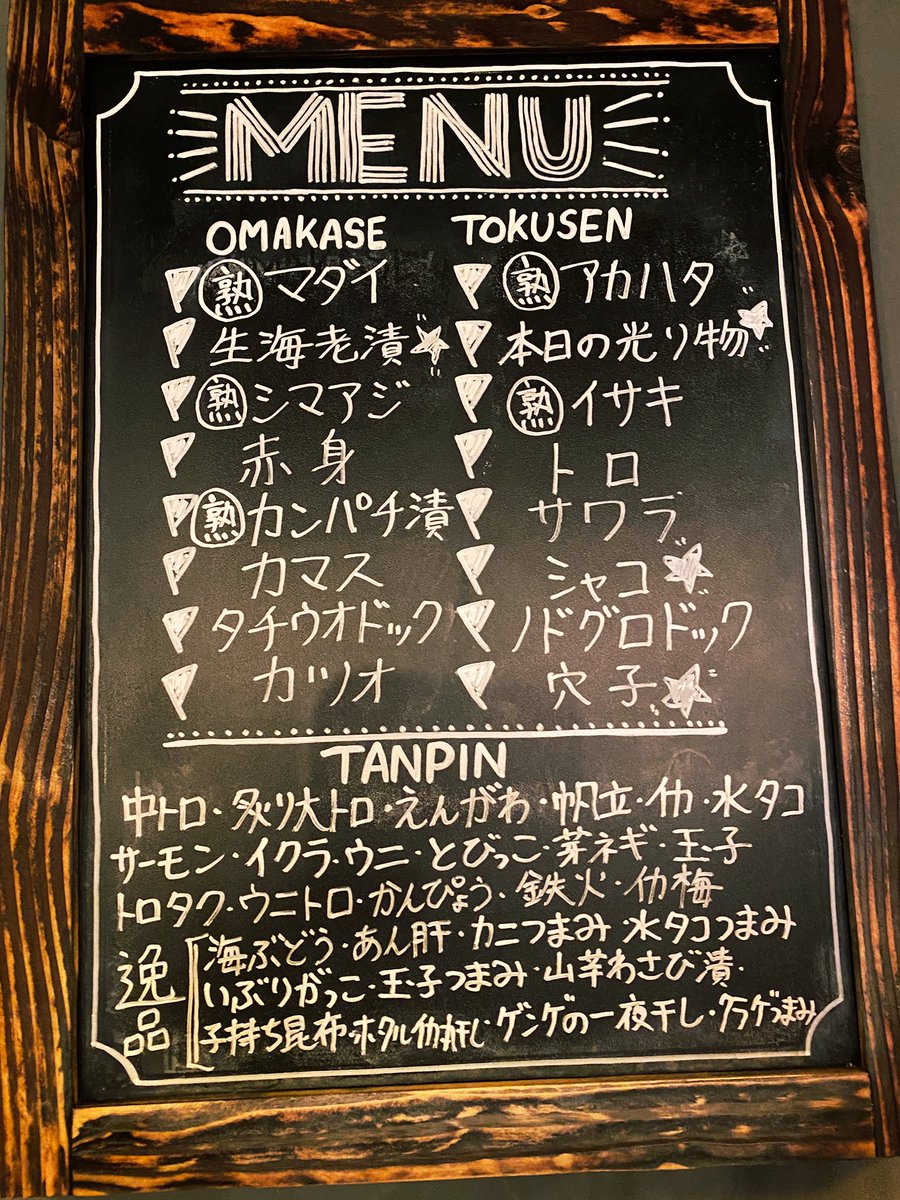 MENU
OMAKASE
熟 マダイ
生海老漬
熟 シマアジ
赤身
熟 カンパチ漬
カマス
タチウオドック
カツオ
TOKUSEN
熟 アカハタ
本日の光り物
熟 イサキ
トロ
サワラ
シャコ
ノドグロドック
穴子
TANPIN
中トロ・炙り大トロ・えんがわ・帆立・イカ・水タコ
サーモン・イクラ・ウニ・とびっこ・芽ネギ・玉子
トロタク・ウニトロ・かんぴょう・鉄火・イカ梅
逸品
海ぶどう・あん肝・カニつまみ 水タコつまみ
いぶりがっこ・玉子つまみ・山芋わさび漬・
子持ち昆布・ホタルイカ干し ゲンゲの一夜干し・クラゲつまみ